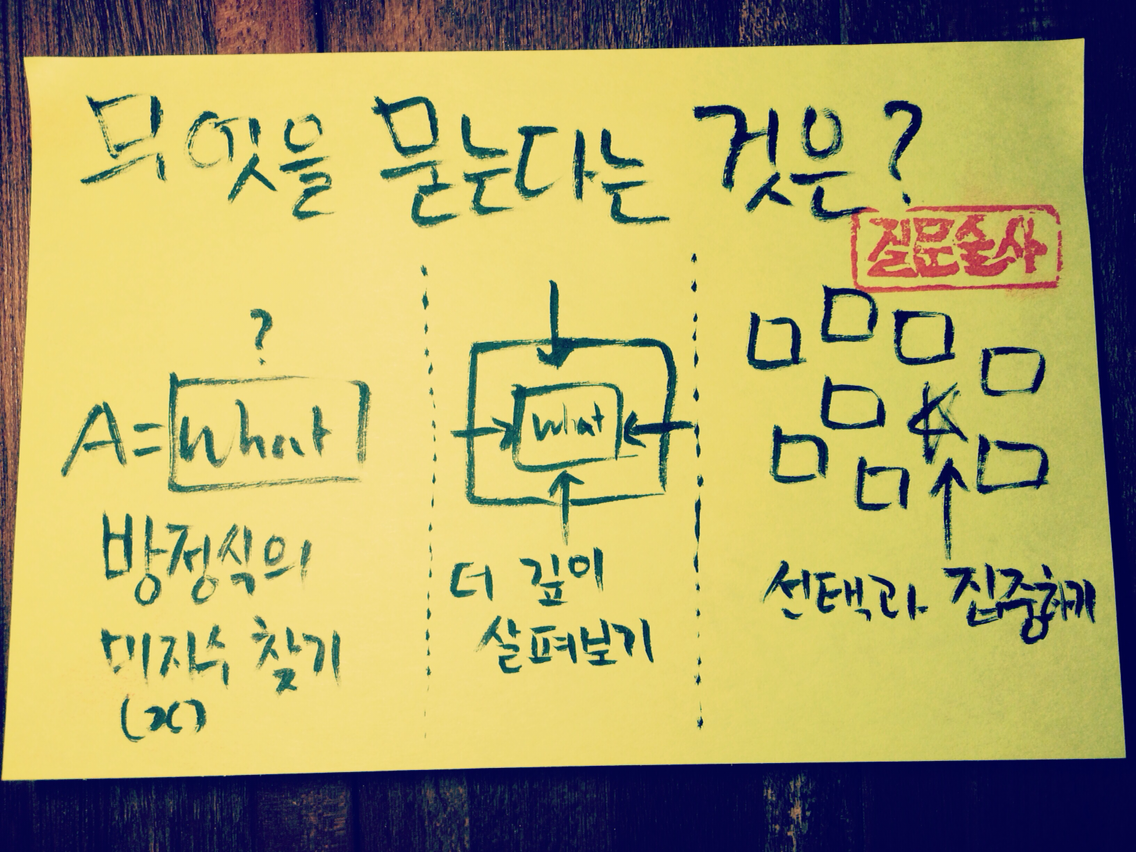 무엇을 묻는다는 것은?
질문술사
?
A = What
방정식의
미지수 찾기
(x)
What
더 깊이
살펴보기
선택과 집중하기